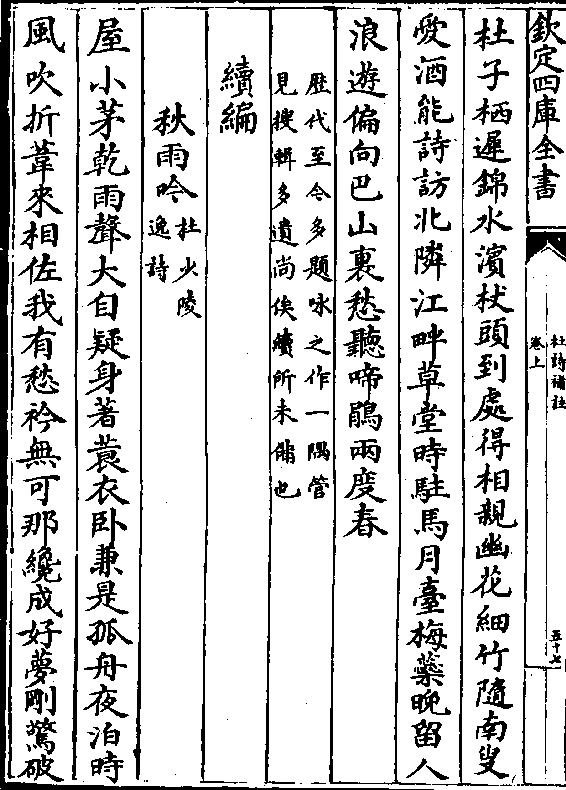 欽定四庫全書
杜詩補註
卷上
五十七
杜子栖遲錦水濱杖頭到處得相親幽花細竹隨南叟
愛酒能詩訪北隣江畔草堂時駐馬月臺梅蘂晚留人
浪遊偏向巴山裏愁聽啼鵑兩度春
歴代至今多題咏之作一隅管
見搜輯多遺尚俟續所未備也
續編
秋雨吟杜少陵
逸詩
屋小茅乾雨聲大自疑身著蓑衣卧兼是孤舟夜泊時
風吹折葦來相佐我有愁衿無可那纔成好夢剛驚破